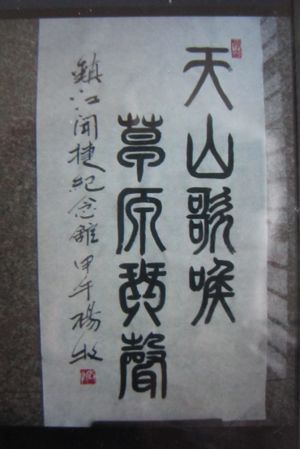 天山歌喉
草原琴聲
鎮江聞捷紀念館甲午楊牧